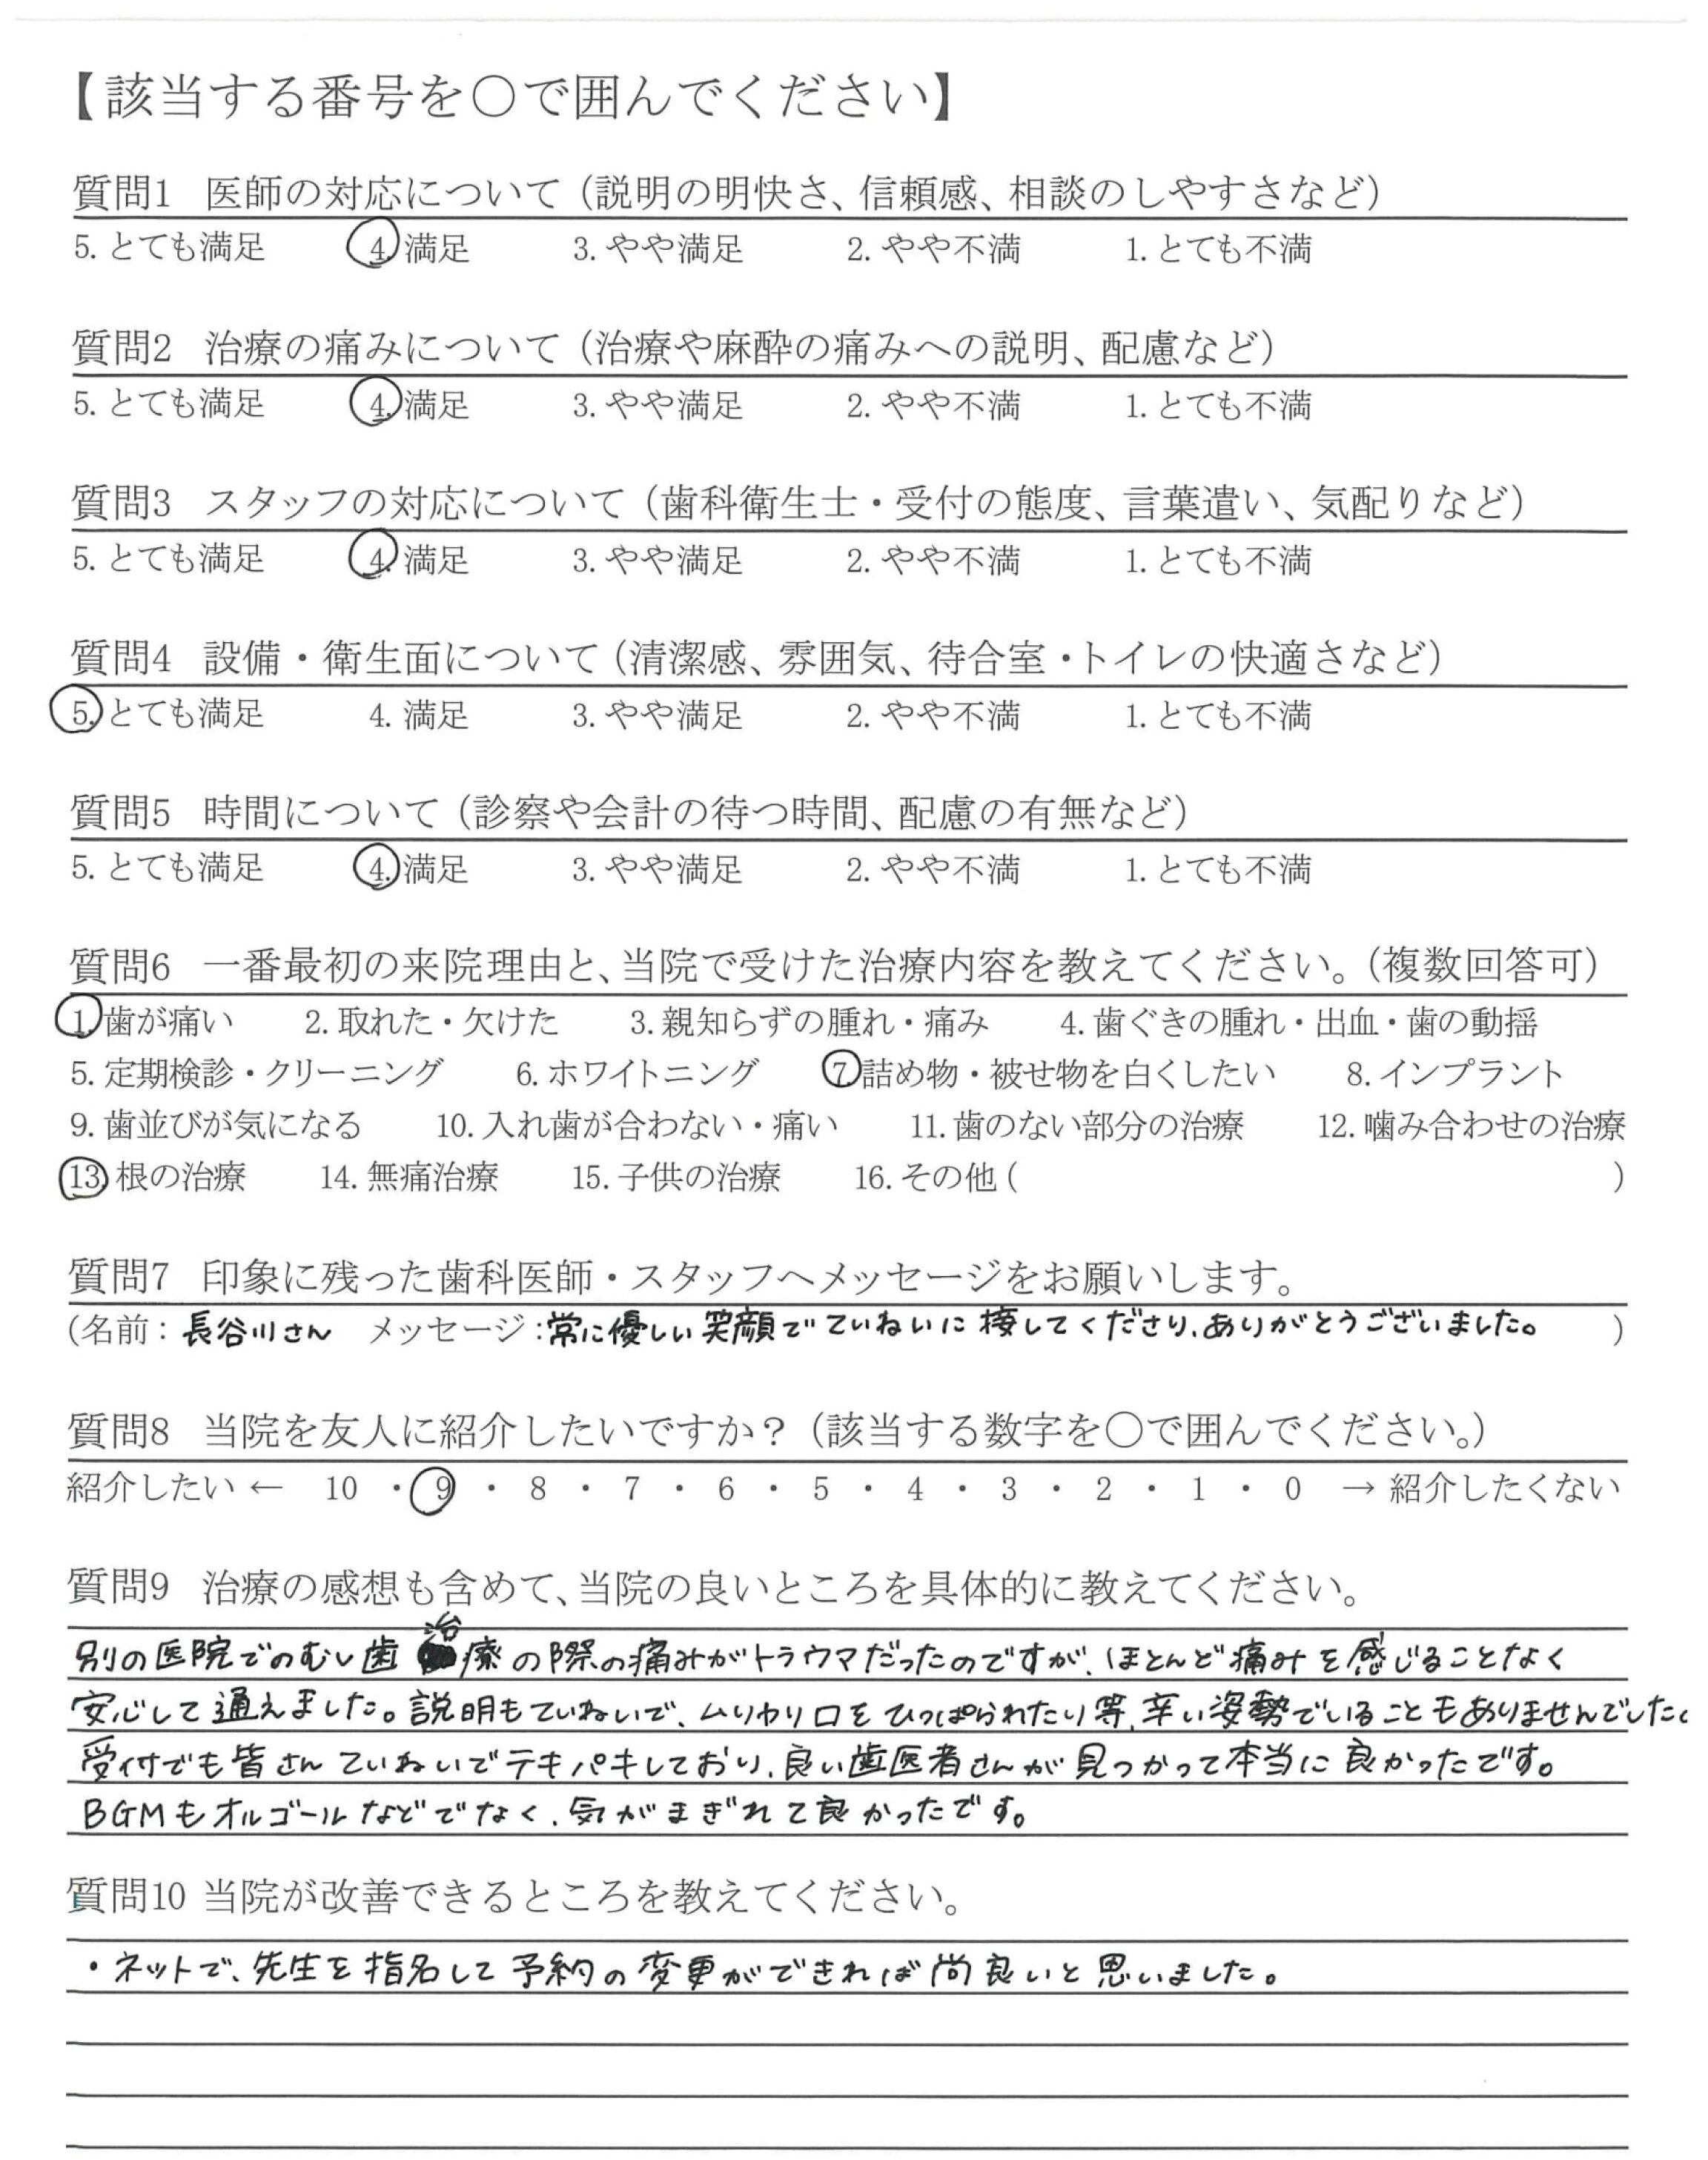 【該当する番号を〇で囲んでください】
質問1 医師の対応について（説明の明快さ、信頼感、相談のしやすさなど）
5. とても満足 4. 満足 3. やや満足 2. やや不満 1. とても不満
質問2 治療の痛みについて（治療や麻酔の痛みへの説明、配慮など）
5. とても満足 4. 満足 3. やや満足 2. やや不満 1. とても不満
質問3 スタッフの対応について（歯科衛生士・受付の態度、言葉遣い、気配りなど）
5. とても満足 4. 満足 3. やや満足 2. やや不満 1. とても不満
質問4 設備・衛生面について（清潔感、雰囲気、待合室・トイレの快適さなど）
5. とても満足 4. 満足 3. やや満足 2. やや不満 1. とても不満
質問5 時間について（診察や会計の待つ時間、配慮の有無など）
5. とても満足 4. 満足 3. やや満足 2. やや不満 1. とても不満
質問6 一番最初の来院理由と、当院で受けた治療内容を教えてください。（複数回答可）
1. 歯が痛い 2. 取れた・欠けた 3. 親知らずの腫れ・痛み 4. 歯ぐきの腫れ・出血・歯の動揺
5. 定期検診・クリーニング 6. ホワイトニング 7. 詰め物・被せ物を白くしたい 8. インプラント
9. 歯並びが気になる 10. 入れ歯が合わない・痛い 11. 歯のない部分の治療 12. 噛み合わせの治療
13. 根の治療 14. 無痛治療 15. 子供の治療 16. その他（ ）
質問7 印象に残った歯科医師・スタッフへメッセージをお願いします。
（名前：長谷川さん メッセージ：常に優しい笑顔でていねいに接してくださり、ありがとうございました。）
質問8 当院を友人に紹介したいですか？（該当する数字を〇で囲んでください。）
紹介したい ← 10 ・ 9 ・ 8 ・ 7 ・ 6 ・ 5 ・ 4 ・ 3 ・ 2 ・ 1 ・ 0 → 紹介したくない
質問9 治療の感想も含めて、当院の良いところを具体的に教えてください。
別の医院でのむし歯治療の際の痛みがトラウマだったのですが、ほとんど痛みを感じることなく
安心して通えました。説明もていねいで、ムリヤリ口をひっぱられたり等、辛い姿勢でいることもありませんでした。
受付でも皆さんていねいでテキパキしており、良い歯医者さんが見つかって本当に良かったです。
BGMもオルゴールなどでなく、気がまぎれて良かったです。
質問10 当院が改善できるところを教えてください。
・ネットで、先生を指名して予約の変更ができれば尚良いと思いました。